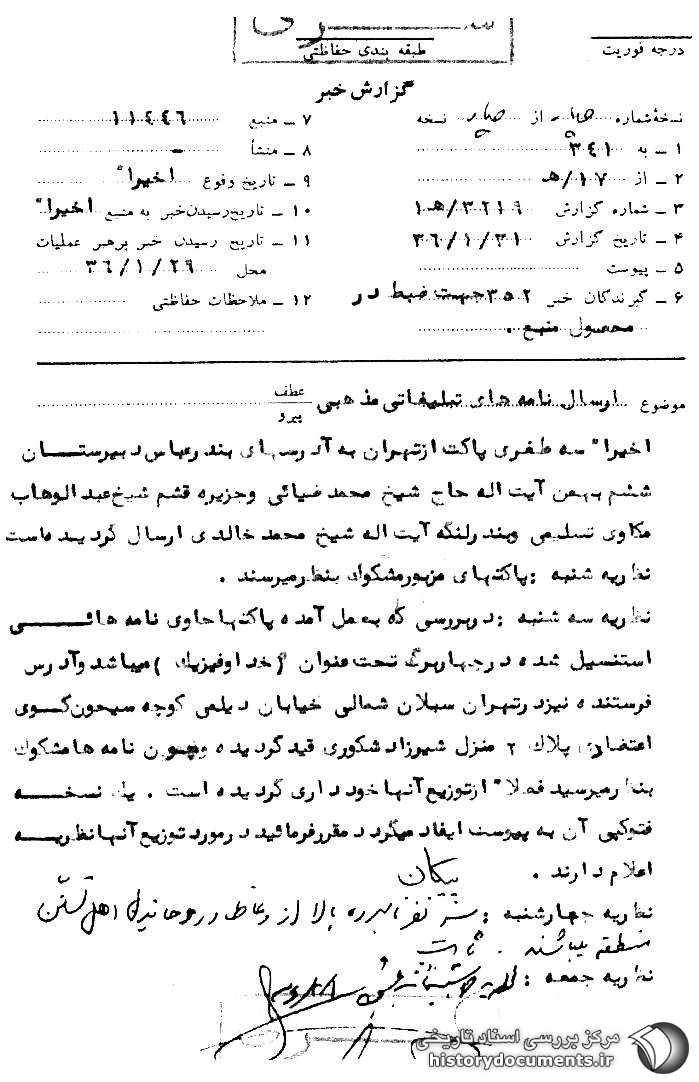 سری
طبقه بندی حفاظتی
درجه فوریت
گزارش خبر
نسخهٔ شماره چهار از چهار نسخه
۱ ـ به ۳۴۱
۲ ـ از ۱۷/هـ
۳ ـ شماره گزارش ۳۲۱۹/هـ۱
۴ ـ تاریخ گزارش ۳۶/۱/۳۱
۵ ـ پیوست
۶ ـ گیرندگان خبر ۳۵۲ جهت ضبط در
محصول منبع .
۷ ـ منبع ۱۱۴۴۶
۸ ـ منشأ ـ
۹ ـ تاریخ وقوع اخیرا"
۱۰ ـ تاریخ رسیدن خبر به منبع اخیرا"
۱۱ ـ تاریخ رسیدن خبر برهبر عملیات
محل ۳۶/۱/۲۹
۱۲ ـ ملاحظات حفاظتی
موضوع ارسال نامه های تبلیغاتی مذهبی عطف
پیرو
اخیرا" سه طغری پاکت ازتهران به آدرسهای بندرعباس دبیرستان
ششم بهمن آیت اله حاج شیخ محمد ضیائی وجزیره قشم شیخ عبدالوهاب
مکاوی تسلیمی وبندرلنگه آیت اله شیخ محمد خالدی ارسال گردیده است
نظریه شنبه : پاکتهای مزبورمشکوک بنظرمیرسند .
نظریه سه شنبه : دربررسی که بعمل آمده پاکتها حاوی نامه هائی
استنسیل شده درچهاربرگ تحت عنوان (خدا وفیزیک) میباشد وآدرس
فرستنده نیزدرتهران سبلان شمالی خیابان دیلمی کوچه سیحون کوی
اعتضادی پلاک ۲ منزل شیرزاد شکوری قید گردیده وچون نامه ها مشکوک
بنظر میرسید فعلا" ازتوزیع آنها خودداری گردیده است . یک نسخه
فتوکپی آن به پیوست ایفاد میگردد مقررفرمائید درمورد توزیع آنها نظریه
اعلام دارند . پیکان
نظریه چهارشنبه : سه نفر نامبرده بالا از وعاظ و روحانیون اهل تسنن
منطقه میباشند .
نظریه جمعه :
مرکز بررسی اسناد تاریخی
historydocuments.ir